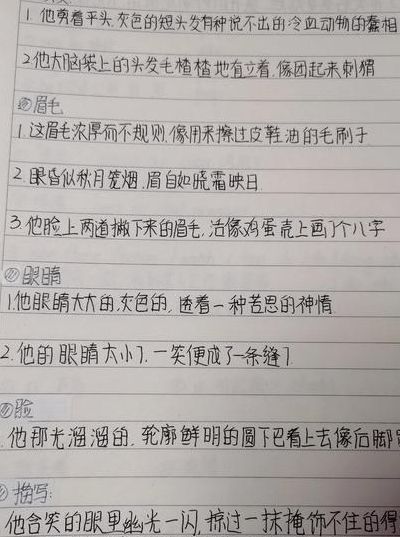 1. 他剪着平头.灰色的短头发有种说不出的冷血动物的蠢相
2他大脑袋上的头发毛楂楂地直立着.像团起来刺猬
眉毛
1.这眉毛浓厚而不规则.像用来擦过皮鞋油的毛刷子
2.眼昏似秋月笼烟.眉白如晓霜映日
3.他脸上两道撇下来的眉毛.活像鸡蛋壳上画了个八字
眼睛
1.他眼睛大大的.灰色的.透着一种苦思的神情.
2.他的眼睛太小了.一笑便成了一条缝了
脸
.他那光溜溜的.轮廓鲜明的圆下巴看上去像后脚
描写:
他含笑的眼里幽光一闪,掠过一抹掩饰不住的得